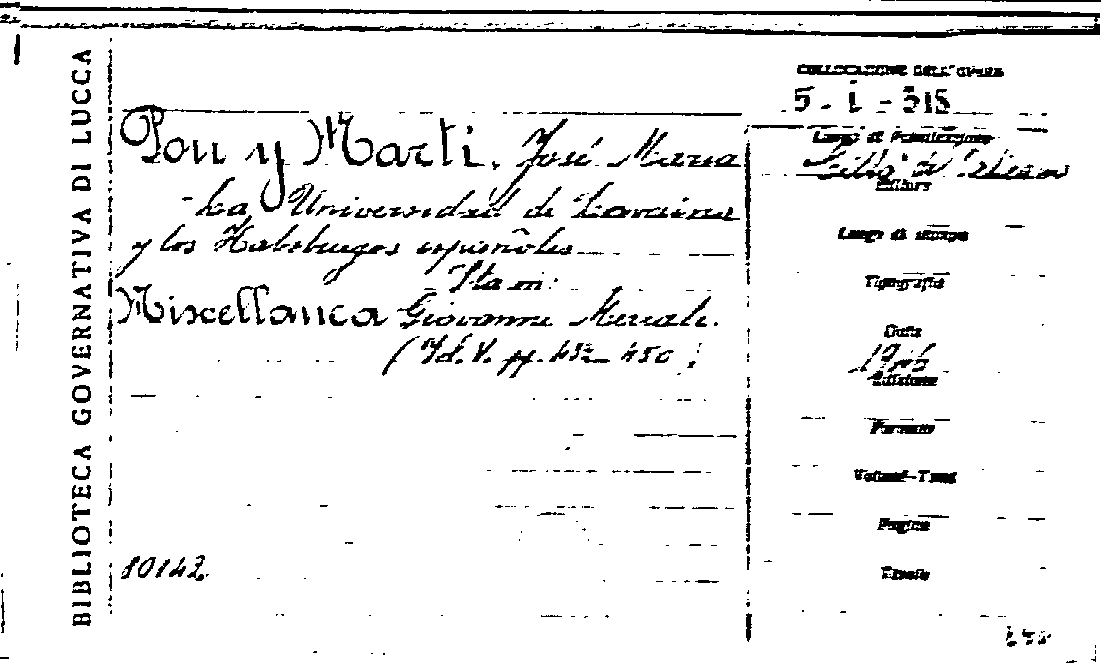 BIBLIOTECA GOVERNATIVA DI LUCCA
COLLOCAZIONE DELL'OPERA
5 - I - 315
Pou y Marti, José Maria
La Universidad de Lovaina
y los Habsburgos españoles
Sta in:
Miscellanea Giovanni Mercati.
(Id. V. pp. 450)
80142
Luogo di Pubblicazione
Città del Vaticano
Editore
Luogo di stampa
Tipografia
Data
1946
Edizione
Formato
Volumi-Tomi
Pagine